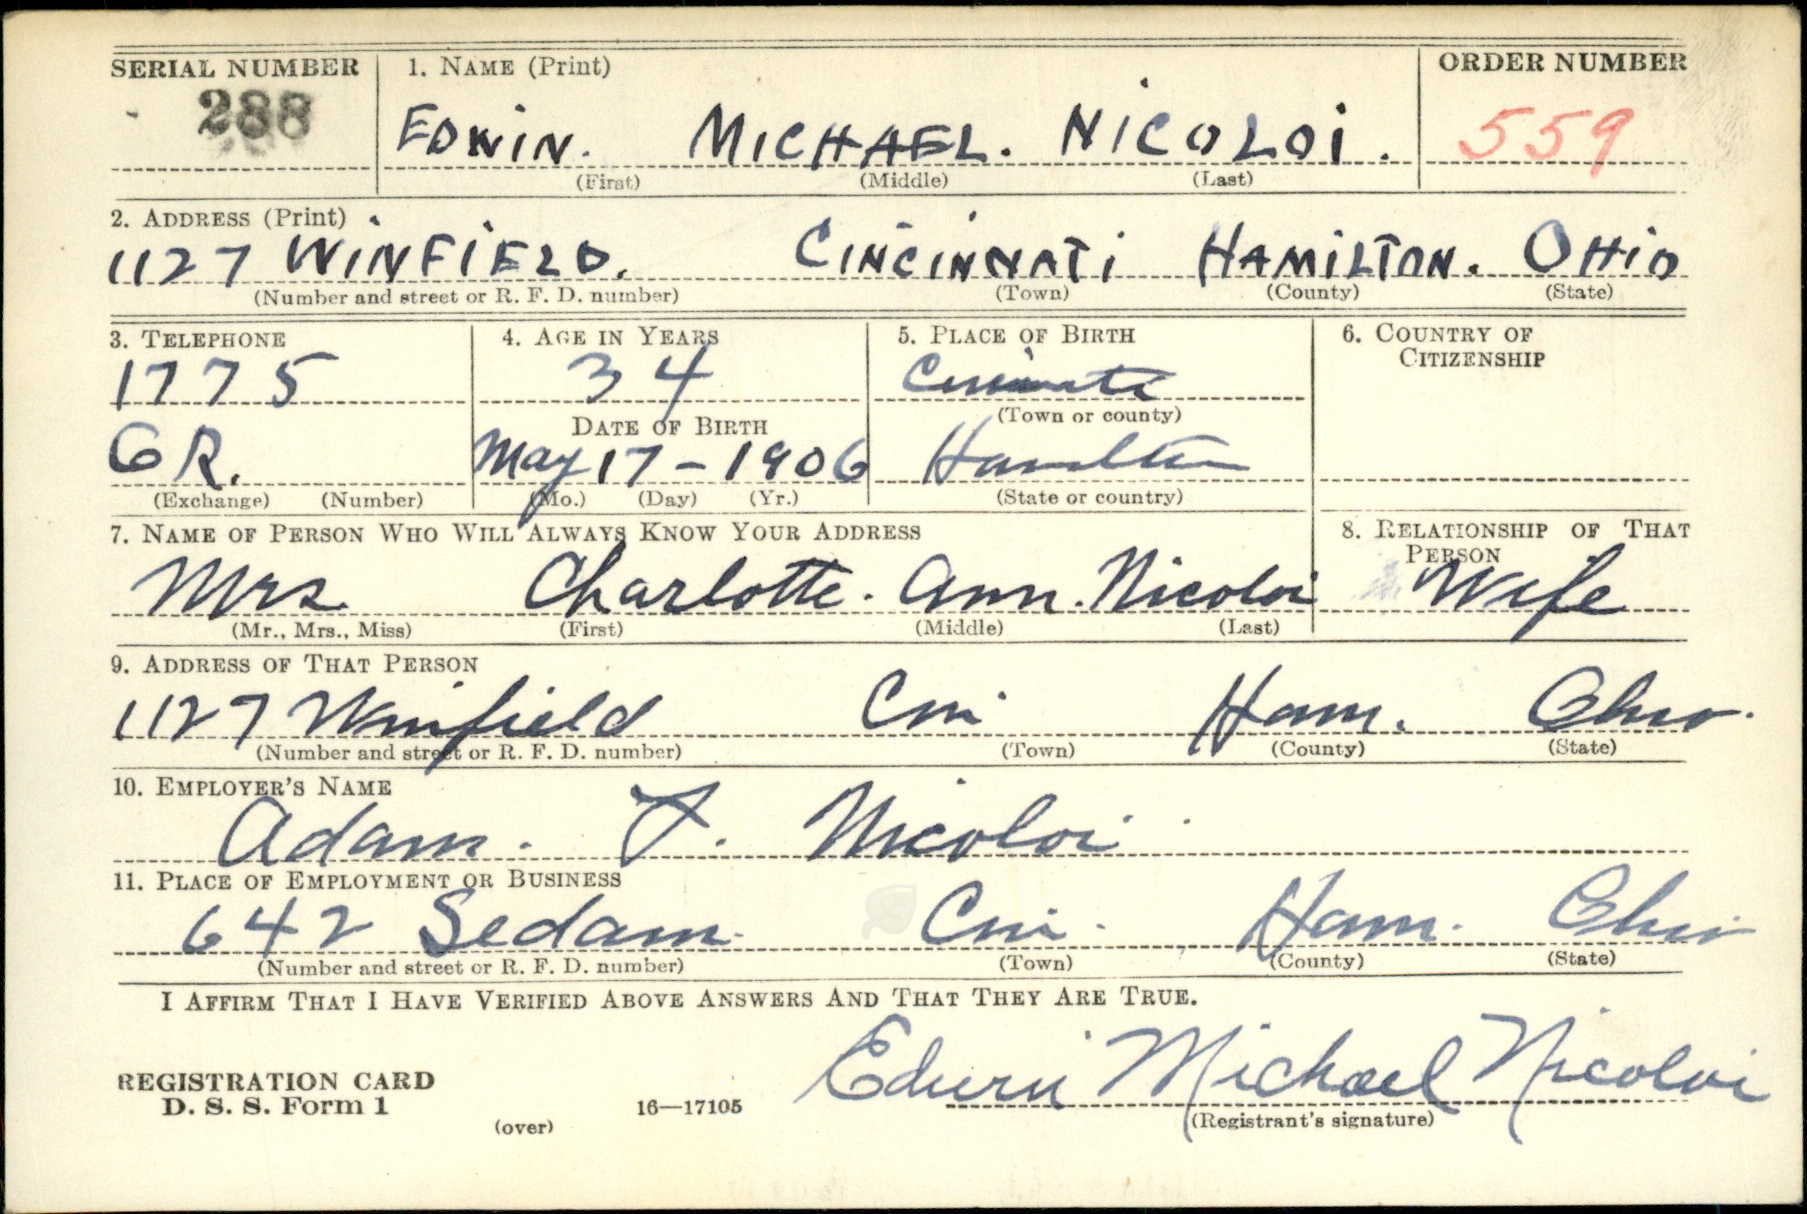 SERIAL NUMBER 1. NAME (Print) ORDER NUMBER
288 EDWIN. MICHAEL. NICOLOI. 559
(First) (Middle) (Last)
2. ADDRESS (Print)
1127 WINFIELD. CINCINNATI HAMILTON. OHIO
(Number and street or R. F. D. number) (Town) (County) (State)
3. TELEPHONE 4. AGE IN YEARS 5. PLACE OF BIRTH 6. COUNTRY OF
CITIZENSHIP
1775 34 Cincinnati
DATE OF BIRTH (Town or county)
GR. May 17-1906 Hamilton
(Exchange) (Number) (Mo.) (Day) (Yr.) (State or country)
7. NAME OF PERSON WHO WILL ALWAYS KNOW YOUR ADDRESS 8. RELATIONSHIP OF THAT
PERSON
Mrs Charlotte. Ann. Nicoloi Wife
(Mr., Mrs., Miss) (First) (Middle) (Last)
9. ADDRESS OF THAT PERSON
1127 Winfield Cin Ham. Ohio.
(Number and street or R. F. D. number) (Town) (County) (State)
10. EMPLOYER'S NAME
Adam. F. Nicoloi
11. PLACE OF EMPLOYMENT OR BUSINESS
642 Sedam Cin. Ham. Ohio
(Number and street or R. F. D. number) (Town) (County) (State)
I AFFIRM THAT I HAVE VERIFIED ABOVE ANSWERS AND THAT THEY ARE TRUE.
Edwin Michael Nicoloi
REGISTRATION CARD
D. S. S. Form 1 16—17105 (Registrant's signature)
(over)